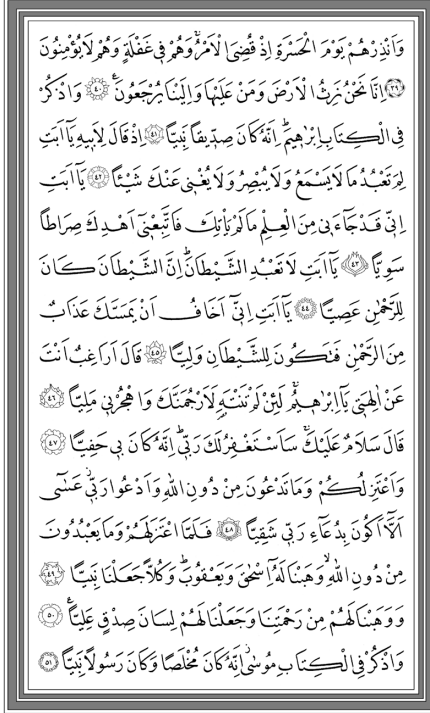 وَاَنْذِرْهُمْ يَوْمَ الْحَسْرَةِ اِذْ قُضِيَ الْاَمْرُۢ وَهُمْ ف۪ي غَفْلَةٍ وَهُمْ لَا يُؤْمِنُونَ
﴿٣٩﴾ اِنَّا نَحْنُ نَرِثُ الْاَرْضَ وَمَنْ عَلَيْهَا وَاِلَيْنَا يُرْجَعُونَ۟ ﴿٤٠﴾ وَاذْكُرْ
فِي الْكِتَابِ اِبْرٰه۪يمَۜ اِنَّهُ كَانَ صِدّ۪يقًا نَبِيًّا ﴿٤١﴾ اِذْ قَالَ لِاَب۪يهِ يَٓا اَبَتِ
لِمَ تَعْبُدُ مَا لَا يَسْمَعُ وَلَا يُبْصِرُ وَلَا يُغْن۪ي عَنْكَ شَيْـًٔا ﴿٤٢﴾ يَٓا اَبَتِ
اِنّ۪ي قَدْ جَٓاءَن۪ي مِنَ الْعِلْمِ مَا لَمْ يَأْتِكَ فَاتَّبِعْن۪ٓي اَهْدِكَ صِرَاطًا
سَوِيًّا ﴿٤٣﴾ يَٓا اَبَتِ لَا تَعْبُدِ الشَّيْطَانَۜ اِنَّ الشَّيْطَانَ كَانَ
لِلرَّحْمٰنِ عَصِيًّا ﴿٤٤﴾ يَٓا اَبَتِ اِنّ۪ٓي اَخَافُ اَنْ يَمَسَّكَ عَذَابٌ
مِنَ الرَّحْمٰنِ فَتَكُونَ لِلشَّيْطَانِ وَلِيًّا ﴿٤٥﴾ قَالَ اَرَاغِبٌ اَنْتَ
عَنْ اٰلِهَت۪ي يَٓا اِبْرٰه۪يمُۚ لَئِنْ لَمْ تَنْتَهِ لَاَرْجُمَنَّكَ وَاهْجُرْن۪ي مَلِيًّا ﴿٤٦﴾
قَالَ سَلَامٌ عَلَيْكَۚ سَاَسْتَغْفِرُ لَكَ رَبّ۪يۜ اِنَّهُ كَانَ ب۪ي حَفِيًّا ﴿٤٧﴾
وَاَعْتَزِلُكُمْ وَمَا تَدْعُونَ مِنْ دُونِ اللّٰهِ وَاَدْعُوا رَبّ۪يۘ عَسٰٓى
اَلَّٓا اَكُونَ بِدُعَٓاءِ رَبّ۪ي شَقِيًّا ﴿٤٨﴾ فَلَمَّا اعْتَزَلَهُمْ وَمَا يَعْبُدُونَ
مِنْ دُونِ اللّٰهِۙ وَهَبْنَا لَهُٓ اِسْحٰقَ وَيَعْقُوبَۜ وَكُلًّا جَعَلْنَا نَبِيًّا ﴿٤٩﴾
وَوَهَبْنَا لَهُمْ مِنْ رَحْمَتِنَا وَجَعَلْنَا لَهُمْ لِسَانَ صِدْقٍ عَلِيًّا۟ ﴿٥٠﴾
وَاذْكُرْ فِي الْكِتَابِ مُوسٰىۘ اِنَّهُ كَانَ مُخْلَصًا وَكَانَ رَسُولًا نَبِيًّا ﴿٥١﴾